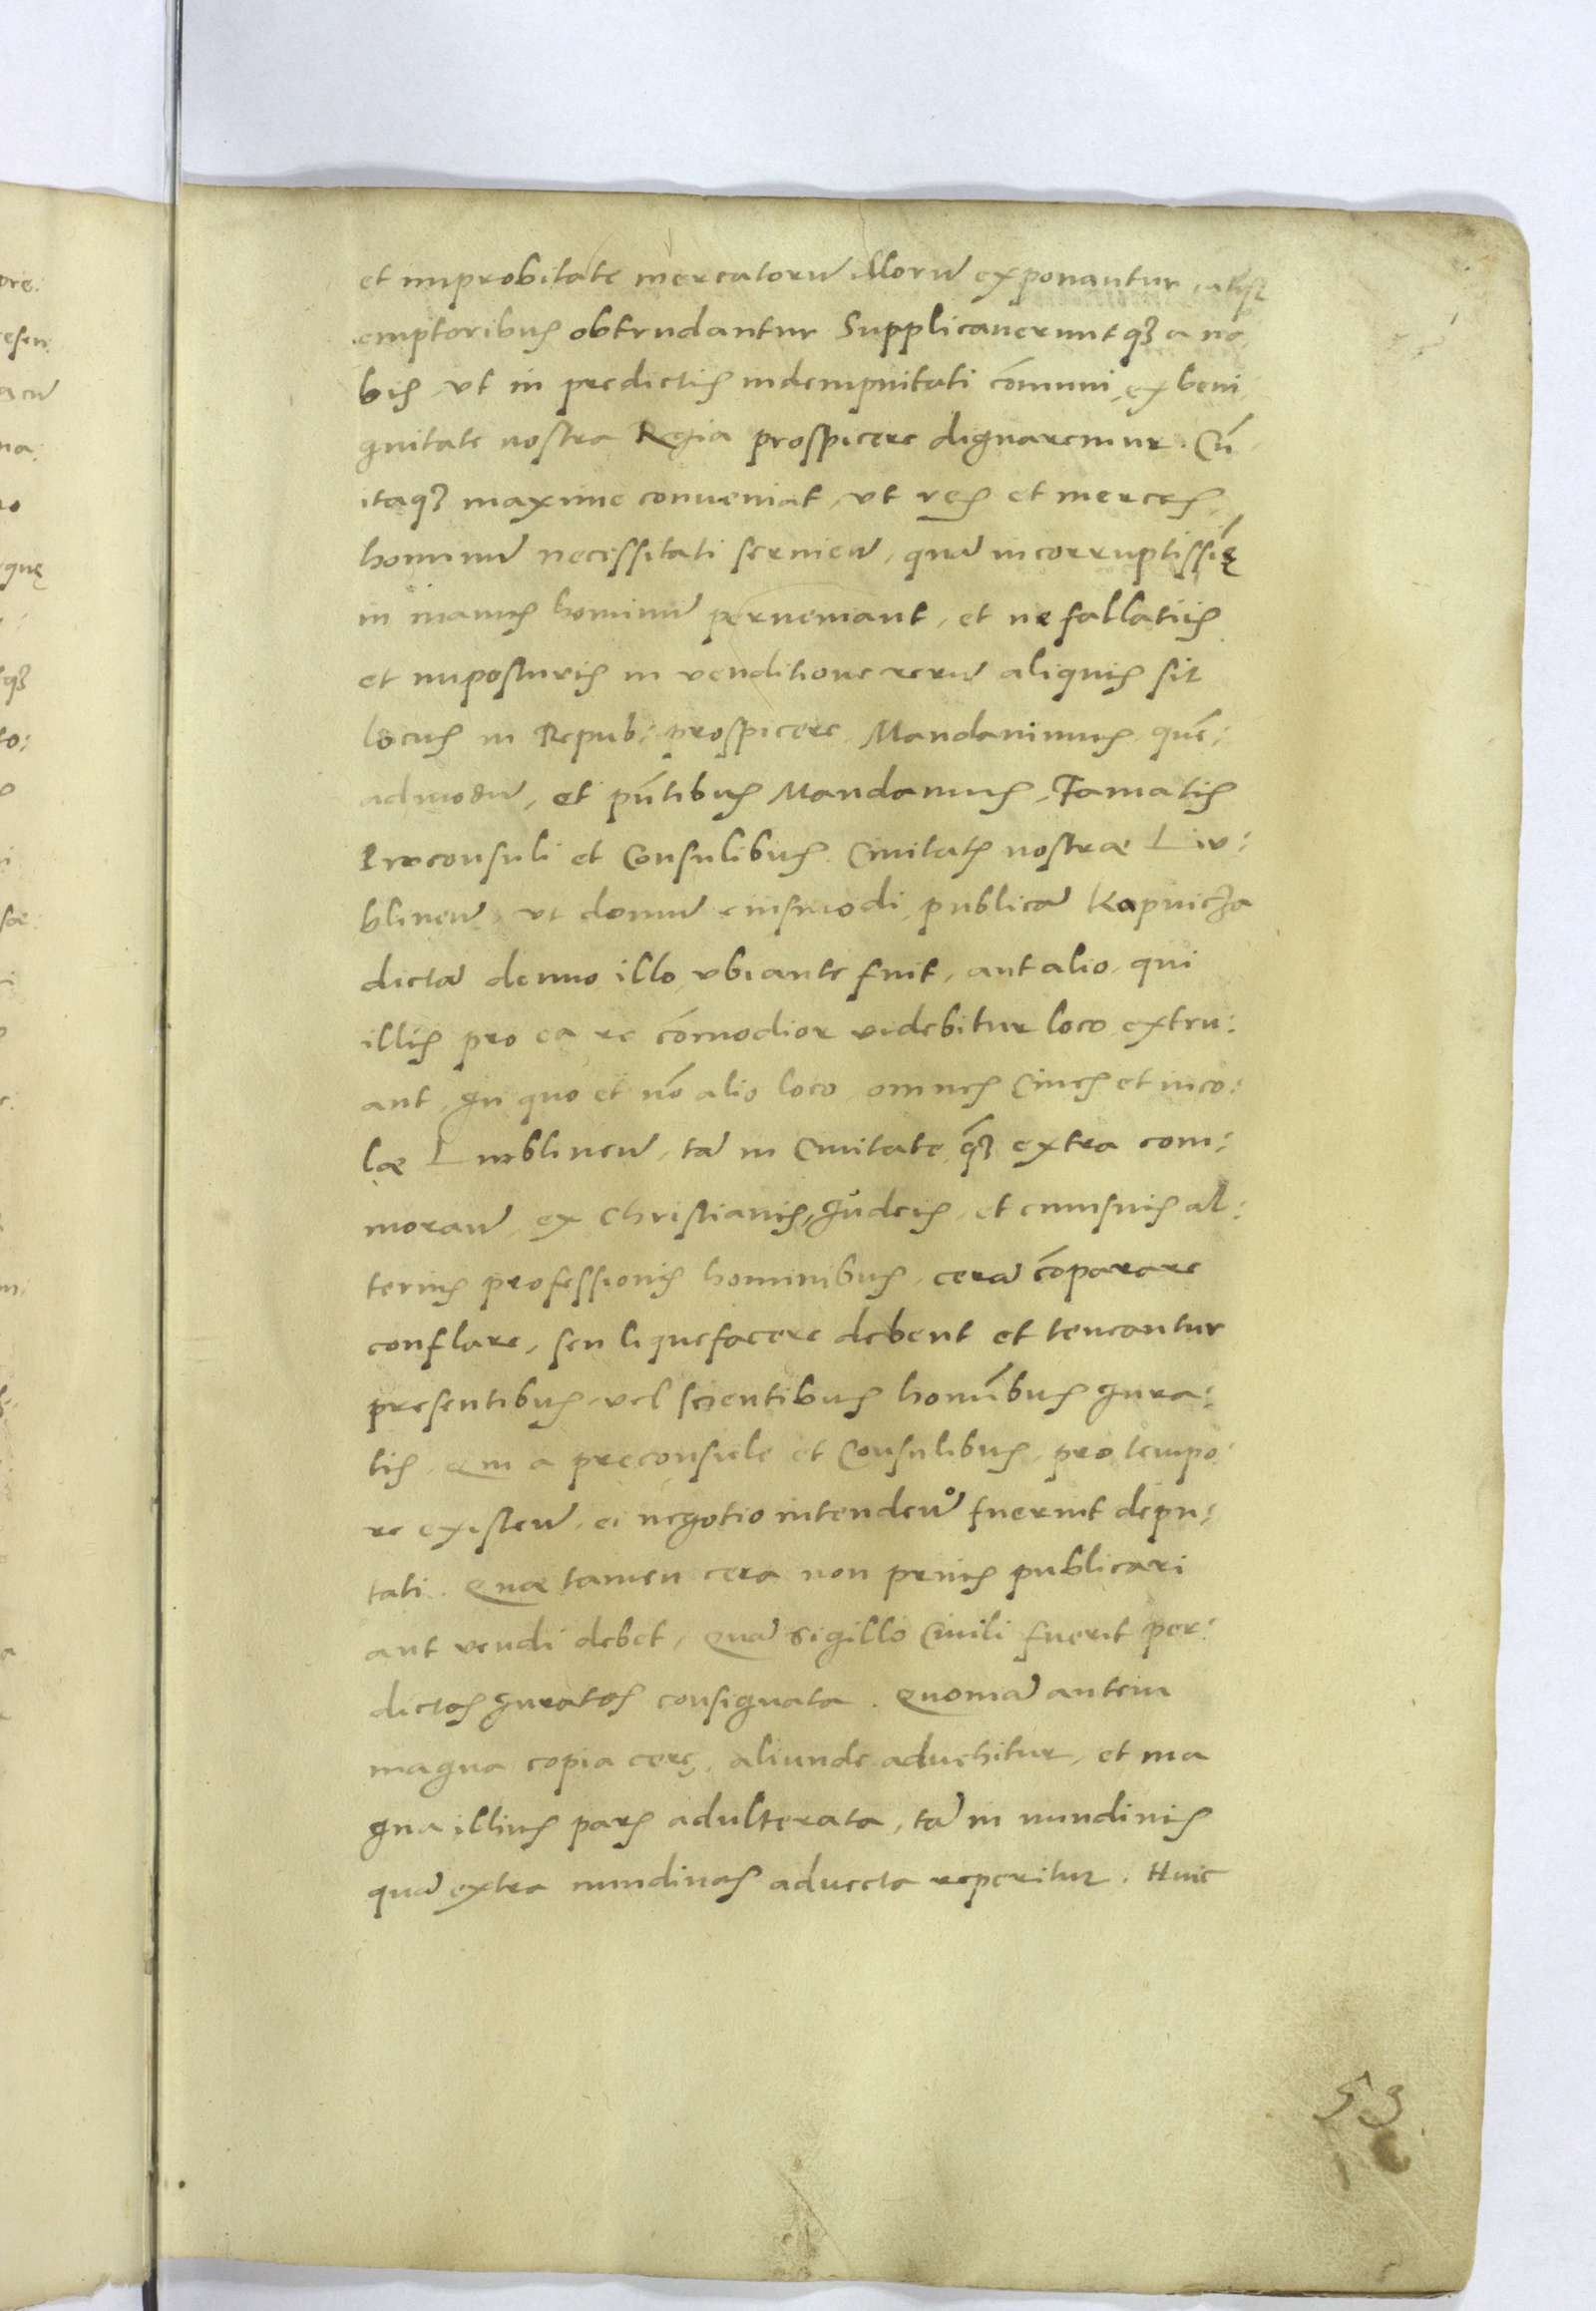 et improbitate mercatorū illorū exponantur, atq3
emptoribus obtrudantur Supplicaueruntq3 a no
bis, vt in predictis indempnitati cōmuni, ex beni
gnitate nostra Regia prospicere dignaremur. Cū
itaq3 maxime conueniat, vt res et merces,
hominū necessitati seruieñ, quā incorruptissiē
in manus hominū perueniant, et ne fallatiis
et imposturis in venditione rerū aliquis sit
locus in Repub: prospicere. Mandauimus quē:
admodū, et pñtibus Mandamus, Famatis
Proconsuli et Consulibus Ciuitatis nostræ Lu:
blineñ, vt domū eiusmodi publicā Kapnicza
dictā denuo illo, vbi ante fuit, aut alio, qui
illis pro ea re cōmodior videbitur loco extru:
ant, In quo et nō alio loco omnes Ciues et inco:
læ Lublineñ, tā in Ciuitate q̄3 extra com:
morañ, ex Christianis, Judeis, et cuiusuis al:
terius professionis hominibus, cerā cōparare
conflare, seu liquefacere debent et teneantur
presentibus, vel scientibus hominibus Jura:
tis, qui a preconsule et Consulibus, pro tempo
re existeñ, ei negotio intendeñ fuerint depu:
tati. Quæ tamen cera non prius publicari
aut vendi debet, quā sigillo Ciuili fuerit per:
dictos Juratos consignata. Quoniā autem
magna copia cerę, aliunde aduehitur, et ma
gna illius pars adulterata, tā in nundinis
quā extra nundinas aduecta reperitur. Huic
53